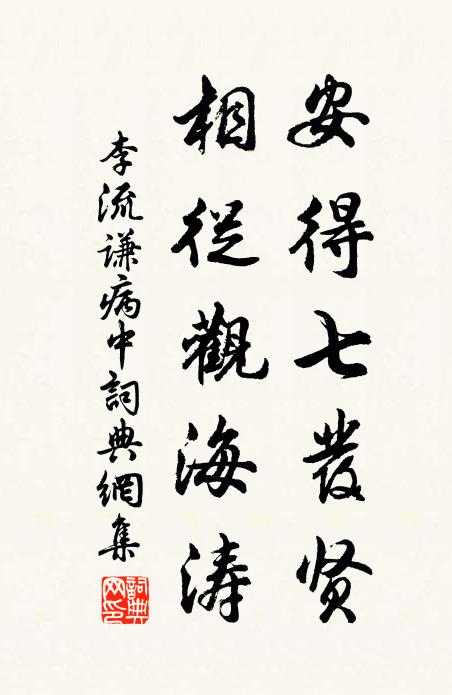 安得七發贤
相從觀海涛
李流谦病中詞典網集
詞典网印